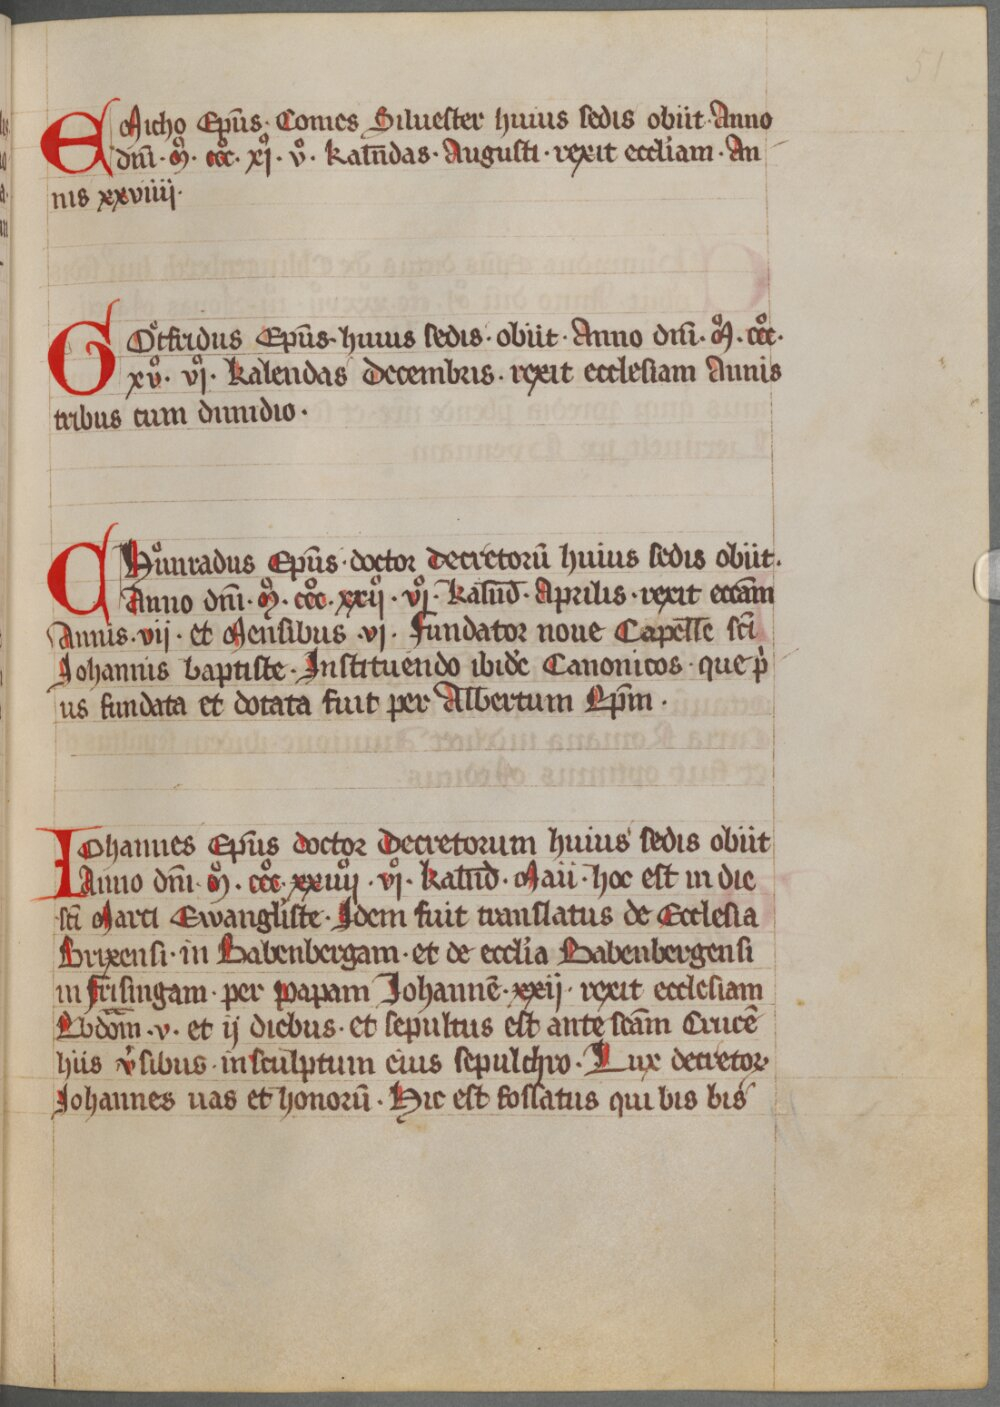 51
EMicho Ep̄us · Comes Siluester huius sedis obiit · Anno
dn̄i · M̊ · ccc̊ · xj̊ · v̊ · kal̄ndas · Augusti · rexit eccl̄iam · An
nis xxviiij ·
GOtfridus Ep̄us · huius sedis · obiit · Anno dn̄i · M̊ · ccc̊ ·
xv̊ · vj̊ · kalendas decembris · rexit ecclesiam Annis
tribus cum dimidio ·
CHůnradus Ep̄us · doctor decretorū huius sedis obiit ·
Anno dn̄i · M̊ · ccc̊ · xxij̊ · vj̊ · kal̄nd · Aprilis · rexit ecc̄am
Annis · vij · et Mensibus · vj · fundator noue Capell̄e sc̄i
Johannis baptiste · Instituendo ibid̄e Canonicos · que p̓
us fundata et dotata fuit per Albertum Ep̄m ·
IOhannes Ep̄us doctor decretorum huius sedis obiit
Anno dn̄i · M̊ · ccc̊ · xxiiij̊ · vj̊ · kal̄nd · Maii · hoc est in die
sc̄i Marci Ewangl̄iste · Idem fuit translatus de Ecclesia
Brixensi · in Babenbergam · et de eccl̄ia Babenbergensi
in frisingam · per papam Johannē · xxij · rexit ecclesiam
Ebdom̄ · v · et ij diebus · et sepultus est ante sc̄am Crucē
hiis v̓sibus · insculptum eius sepulchro · Lux decretoꝝ
Johannes uas et honorū · Hic est fossatus qui bis bis